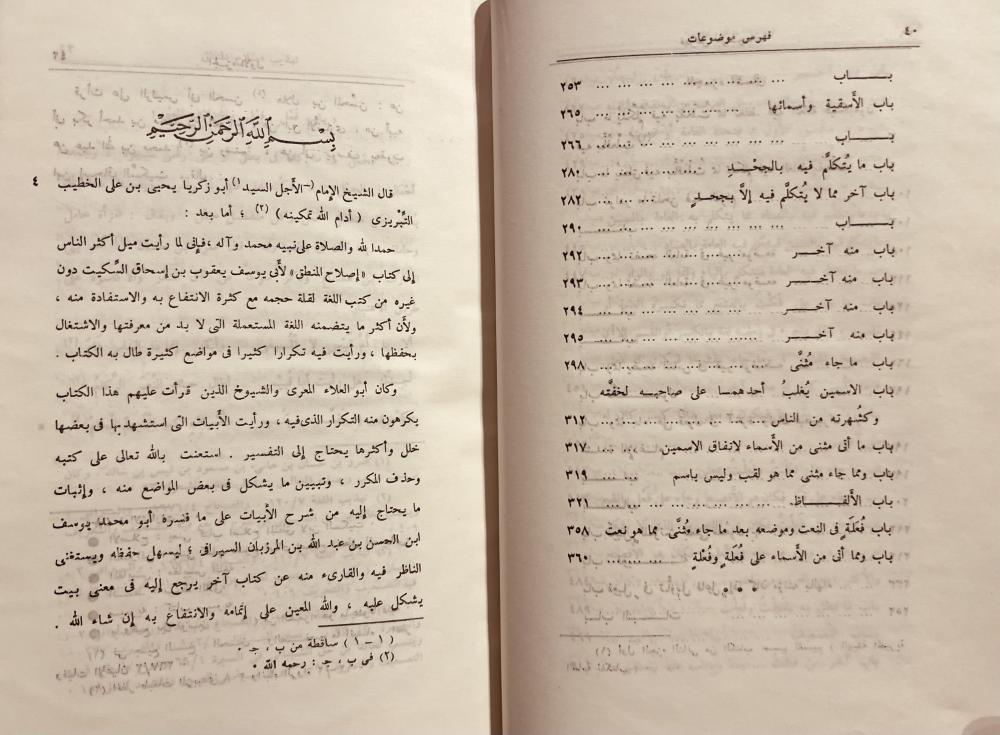 ٤٠
فهرس موضوعات
بــــــاب ... ... ... ... ... ... ... ٢٥٣
باب الأسقية وأسمائها ... ... ... ... ... ... ٢٦٥
بــــــاب ... ... ... ... ... ... ... ٢٦٦
باب ما يُتكلَّم فيه بالجحْـــد ... ... ... ... ٢٨٠
باب آخر مما لا يُتكلَّم فيه إلاَّ بجحدٍ ... ... ... ٢٨٢
بــــــاب ... ... ... ... ... ... ... ٢٩٠
باب منه آخـــر ... ... ... ... ... ... ٢٩٢
باب منه آخـــر ... ... ... ... ... ... ٢٩٣
باب منه آخـــر ... ... ... ... ... ... ٢٩٤
باب منه آخـــر ... ... ... ... ... ... ٢٩٥
باب ما جاء مُثنَّى ... ... ... ... ... ... ٢٩٨
باب الاسمين يُغلبُ أحدهمسا على صاحبسه لخفَّته
وكشُهرته من الناس ... ... ... ... ... ... ٣١٢
باب ما أتى مثنى من الأسماء لاتفاق الاسمين ... ... ٣١٧
باب ومما جاء مثنى مما هو لقب وليس باسم ... ... ٣١٩
باب الألفـــاظ ... ... ... ... ... ... ٣٢١
باب فُعَلَةٍ فى النعت وموضعه بعد ما جاء مُثنَّى مما هو نعت ٣٥٨
باب ومما أتى من الأسماء على فُعَلَةٍ وفُعْلَةٍ ... ... ... ٣٦٠
بِسْمِ ٱللَّهِ ٱلرَّحْمَٰنِ ٱلرَّحِيمِ
قال الشيخ الإمام (١–الأجل السيد١) أبو زكريا يحيى بن على الخطيب ٤
التِّبْريزى ( أدام الله تمكينه ) (٢) ؛ أما بعد :
حمدا لله والصلاة على نبيه محمد وآله ، فإنى لما رأيت ميل أكثر الناس
إلى كتاب «إصلاح المنطق» لأبى يوسف يعقوب بن إسحاق السِّكيت دون
غيره من كتب اللغة لقلة حجمه مع كثرة الانتفاع به والاستفادة منه ،
ولأن أكثر ما يتضمنه اللغة المستعملة التى لا بد من معرفتها والاشتغال
بحفظها ، ورأيت فيه تكرارا كثيرا فى مواضع كثيرة طال به الكتاب .
وكان أبو العلاء المعرى والشيوخ الذين قرأت عليهم هذا الكتاب
يكرهون منه التكرار الذى فيه ، ورأيت الأبيات التى استشهد بها فى بعضها
خلل وأكثرها يحتاج إلى التفسير . استعنت بالله تعالى على كتبه
وحذف المكرر ، وتبيين ما يشكل فى بعض المواضع منه ، وإثبات
ما يحتاج إليه من شرح الأبيات على ما فسره أبو محمد يوسف
ابن الحسن بن عبد الله بن المرزبان السيرافى ؛ ليسهل حفظه ويستغنى
الناظر فيه والقارىء منه عن كتاب آخر يرجع إليه فى معنى بيت
يشكل عليه ، والله المعين على إتمامه والانتفاع به إن شاء الله .
(١ – ١) ساقطة من ب ، جـ .
(٢) فى ب ، جـ : رحمه الله .